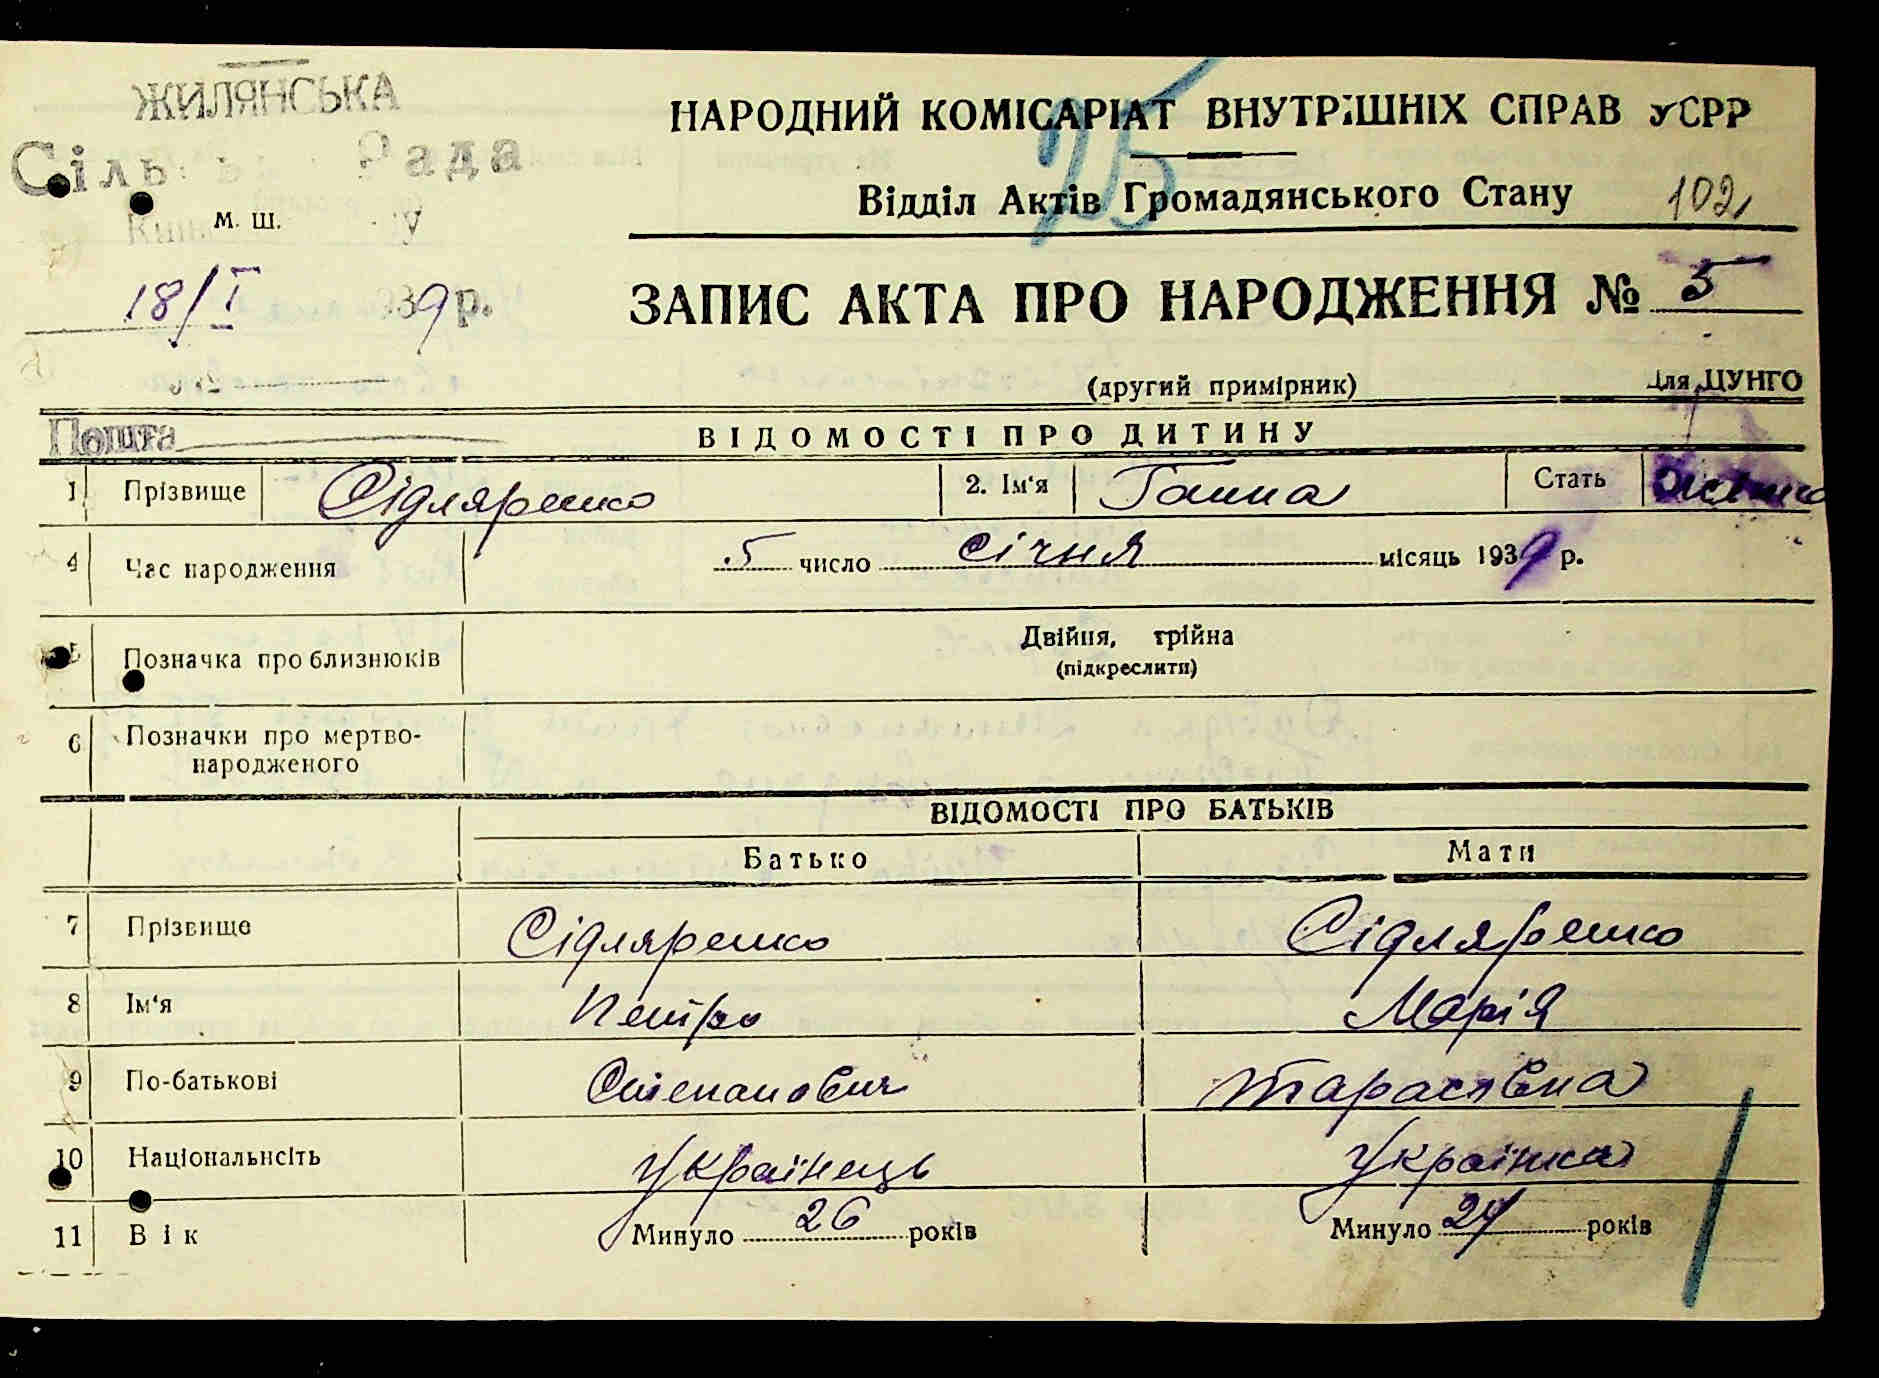 ЖИЛЯНСЬКА
НАРОДНИЙ КОМІСАРІАТ ВНУТРІШНІХ СПРАВ УСРР
75
Рада
Відділ Актів Громадянського Стану 102
м. ш.
18/I 1939 р.
ЗАПИС АКТА ПРО НАРОДЖЕННЯ № 5
(другий примірник) Для ЦУНГО
Пошта
ВІДОМОСТІ ПРО ДИТИНУ
1 Прізвище Сідляренко 2. Ім'я Ганна Стать
4 Час народження 5 число січня місяць 1939 р.
5 Позначка про близнюків Двійня, трійна
(підкреслити)
6 Позначки про мертво-
народженого
ВІДОМОСТІ ПРО БАТЬКІВ
Батько Мати
7 Прізвище Сідляренко Сідляренко
8 Ім'я Петро Марія
9 По-батькові Степанович Тарасівна
10 Національнсіть Українець Українка
11 Вік Минуло 26 років Минуло років